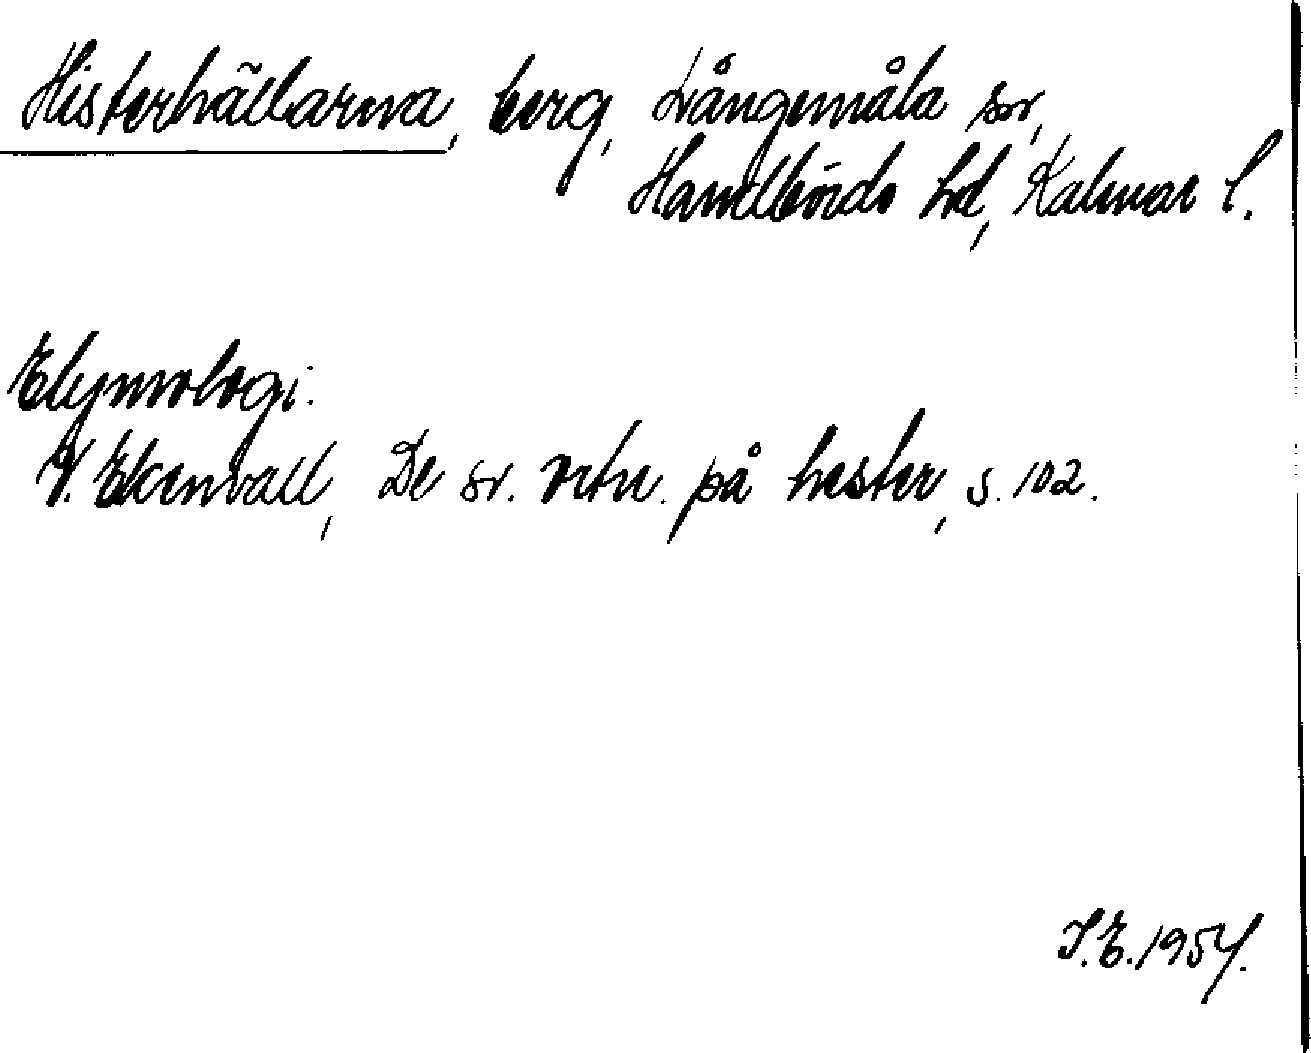 Histerhällarna, berg, Långemåla sn,
Handbörds hd, Kalmar l.
Etymologi:
V. Ekenvall, De sv. ortn. på hester, s. 102.
I.E. 1954.